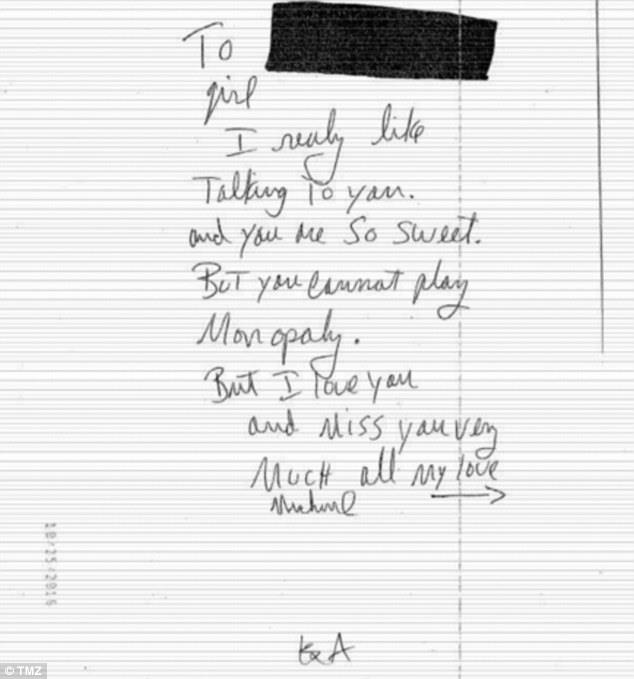 To
girl
I realy like
Talking To you.
and you are So Sweet.
BuT you cannot play
Monopaly.
But I love you
and Miss you very
Much all My love
Michael
10/25/2016
© TMZ